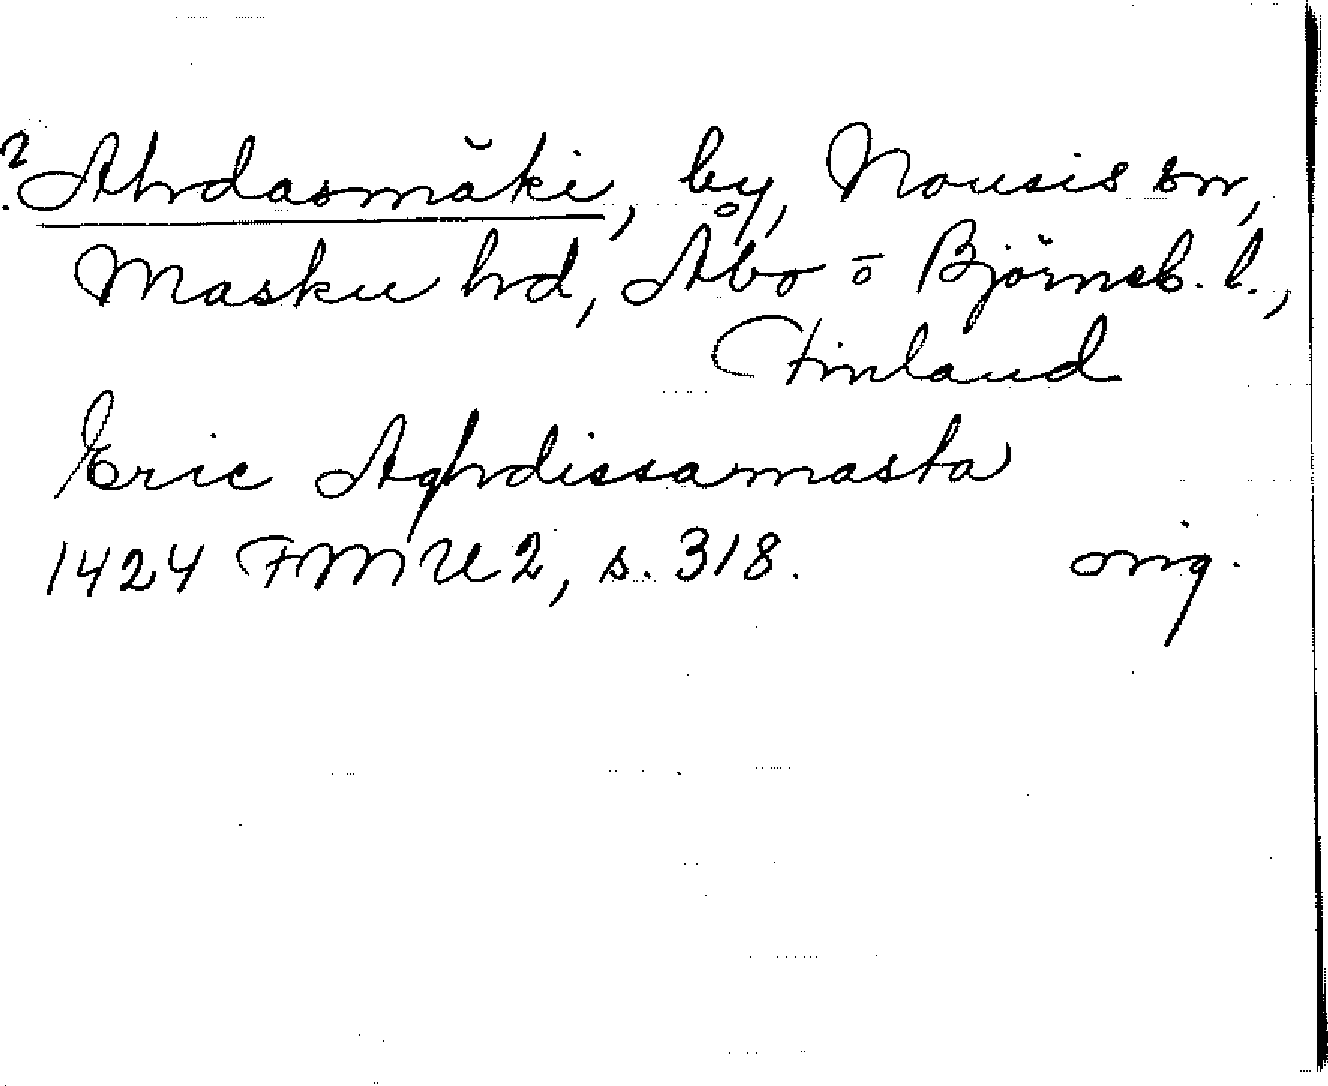 ? Ahrdasmäki, by, Nousis sn,
Masku hd, Åbo o Björneb. l.,
Finland
Eric Aghrdissamasta
1424 FMU 2, s. 318. orig.